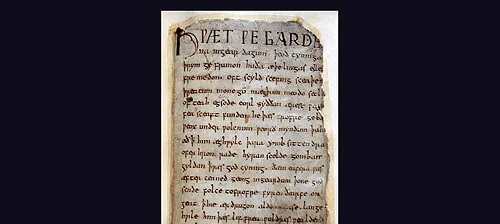 HǷÆT ǷE GARDE
na ingear dagum. þeod cyninga
þrym ge frunon huða æþelingas elle
fre medon. oft scyld scefing sceaþe
þreatum monegū mægþum meodo setl
of teah egsode eorl syððan ærest
fea sceaft funden he þæs frofre geba
ƿeox under ƿolcnum ƿeorð myndum þah
oð þ him æghƿylc þara ymb sittendra
ofer hron rade hyran scolde gomban
gyldan þæt ƿæs god cyning. ðæm eafera ƿæs
æfter cenned geong ingeardum þone god
sende folce tofrofre fyren ðearfe on
geat þ hie ær drugon lange
hƿile him þæs lif frea ƿuldres